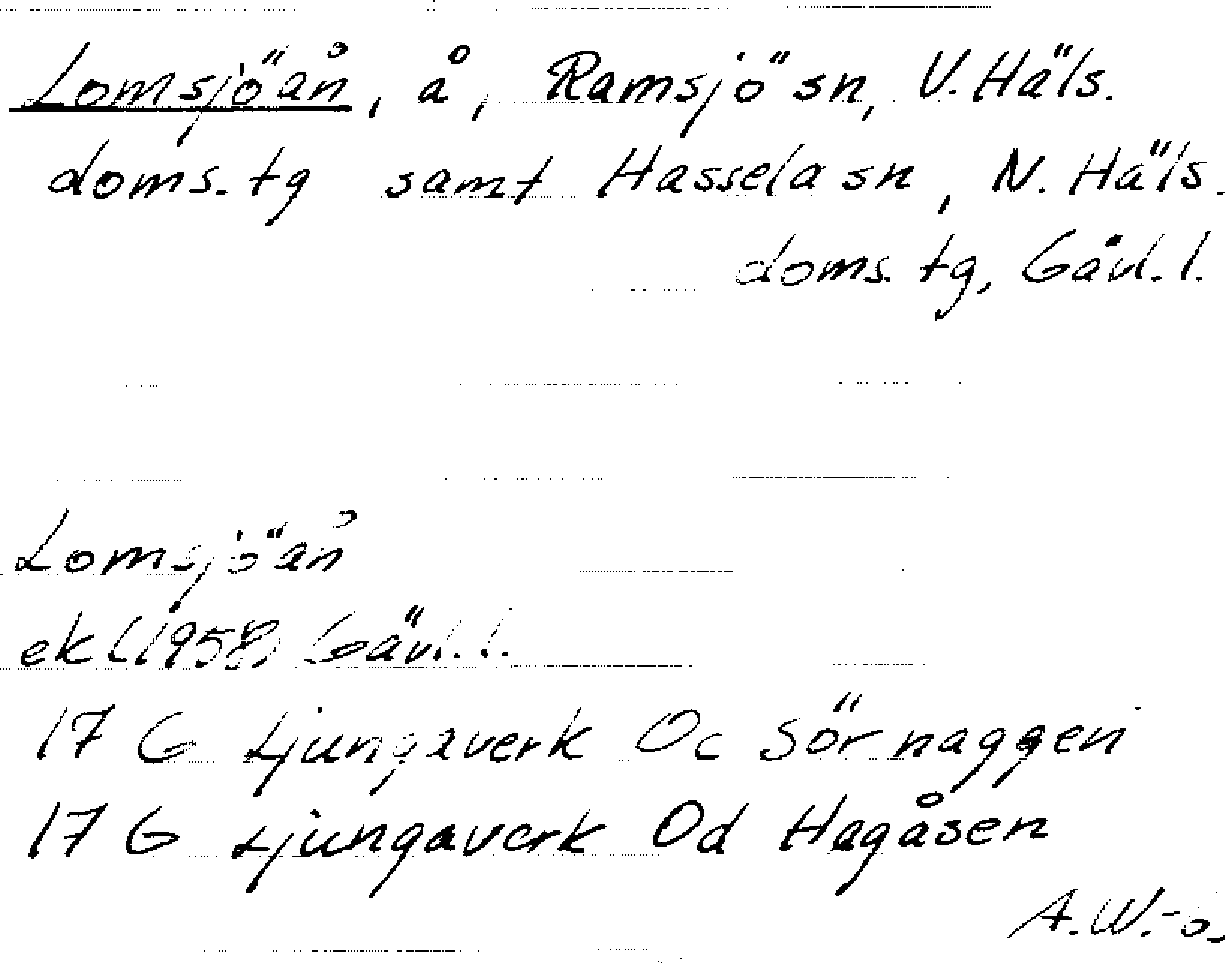 Lomsjöån, å, Ramsjö sn, V. Häls.
doms. tg samt Hassela sn, N. Häls.
doms. tg, Gävl. l.
Lomsjöån
ek (1958) Gävl. l.
17 G Ljungaverk Oc Sörnaggen
17 G Ljungaverk Od Hagåsen
A.W.-ö.